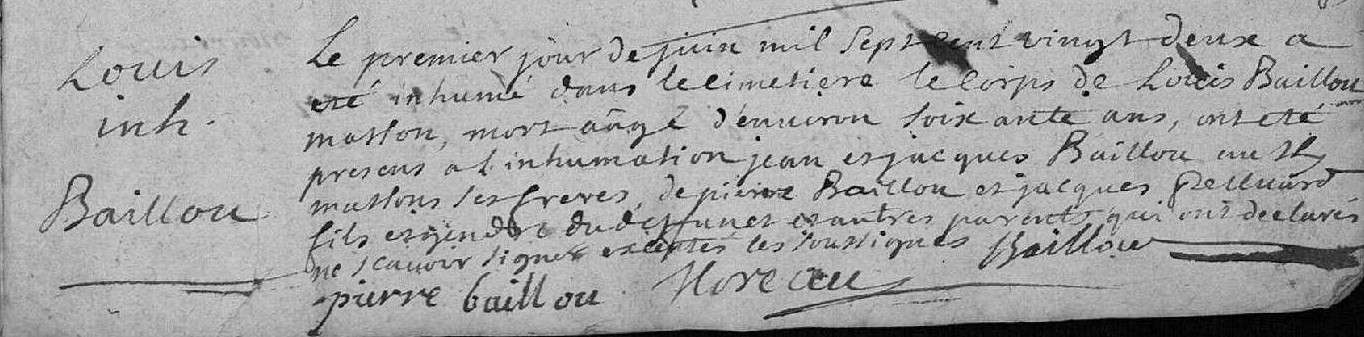 Louis
inh.
Baillou
Le premier jour de juin mil sept cent vingt deux a
eté inhumé dans le cimetiere le corps de Louis Baillou
masson, mort aâgé d'environ soixante ans, ont eté
presens a l'inhumation jean et jacques Baillou aussy
massons ses freres, de pierre Baillou et jacques
fils et gendre du deffunct et autres parents qui ont declarés
ne scavoir signer exceptés les soussignés Baillou
pierre baillou Moreau